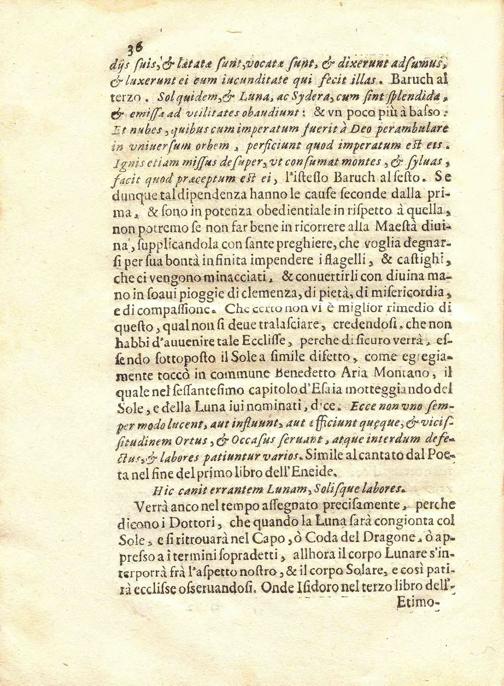 36
dijs suis, & lætatæ sunt, vocatæ sunt, & dixerunt adsumus,
& luxerunt ei cum iucunditate qui fecit illas. Baruch al
terzo. Sol quidem, & Luna, ac Sydera, cum sint splendida,
& emissa ad vtilitates obaudiunt: & vn poco più à basso.
Et nubes, quibus cum imperatum fuerit à Deo perambulare
in vniuersum orbem, perficiunt quod imperatum est eis.
Ignis etiam missus desuper, vt consumat montes, & syluas,
facit quod præceptum est ei, l'istesso Baruch al sesto. Se
dunque tal dipendenza hanno le cause seconde dalla pri-
ma, & sono in potenza obedientiale in rispetto à quella,
non potremo se non far bene in ricorrere alla Maestà diui-
na, supplicandola con sante preghiere, che voglia degnar-
si per sua bontà infinita impendere i flagelli, & castighi,
che ci vengono minacciati, & conuertirli con diuina ma-
no in soaui pioggie di clemenza, di pietà, di misericordia,
e di compassione. Che certo non vi è miglior rimedio di
questo, qual non si deue tralasciare, credendosi, che non
habbi d'auuenire tale Ecclisse, perche di sicuro verrà, es-
sendo sottoposto il Sole a simile difetto, come egregia-
mente toccò in commune Benedetto Aria Montano, il
quale nel sessantesimo capitolo d'Esaia motteggiando del
Sole, e della Luna iui nominati, dice. Ecce non vno sem-
per modo lucent, aut influunt, aut efficiunt quęque, & vicis-
situdinem Ortus, & Occasus seruant, atque interdum defe-
ctus, & labores patiuntur varios. Simile al cantato dal Poe-
ta nel fine del primo libro dell'Eneide.
Hic canit errantem Lunam, Solisque labores.
Verrà anco nel tempo assegnato precisamente, perche
dicono i Dottori, che quando la Luna sarà congionta col
Sole, e si ritrouarà nel Capo, ò Coda del Dragone, ò ap-
presso a i termini sopradetti, allhora il corpo Lunare s'in-
terporrà frà l'aspetto nostro, & il corpo Solare, e così pati-
rà ecclisse osseruandosi. Onde Isidoro nel terzo libro dell'-
Etimo-